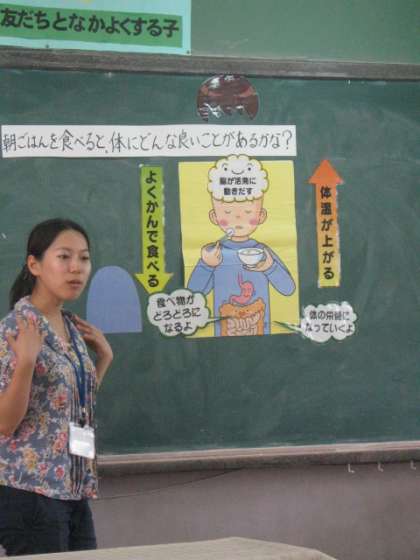 友だちとなかよくする子
朝ごはんを食べると、体にどんな良いことがあるかな?
脳が活発に
動きだす
よくかんで食べる
体温が上がる
食べ物が
どろどろに
なるよ
体の栄養に
なっていくよ